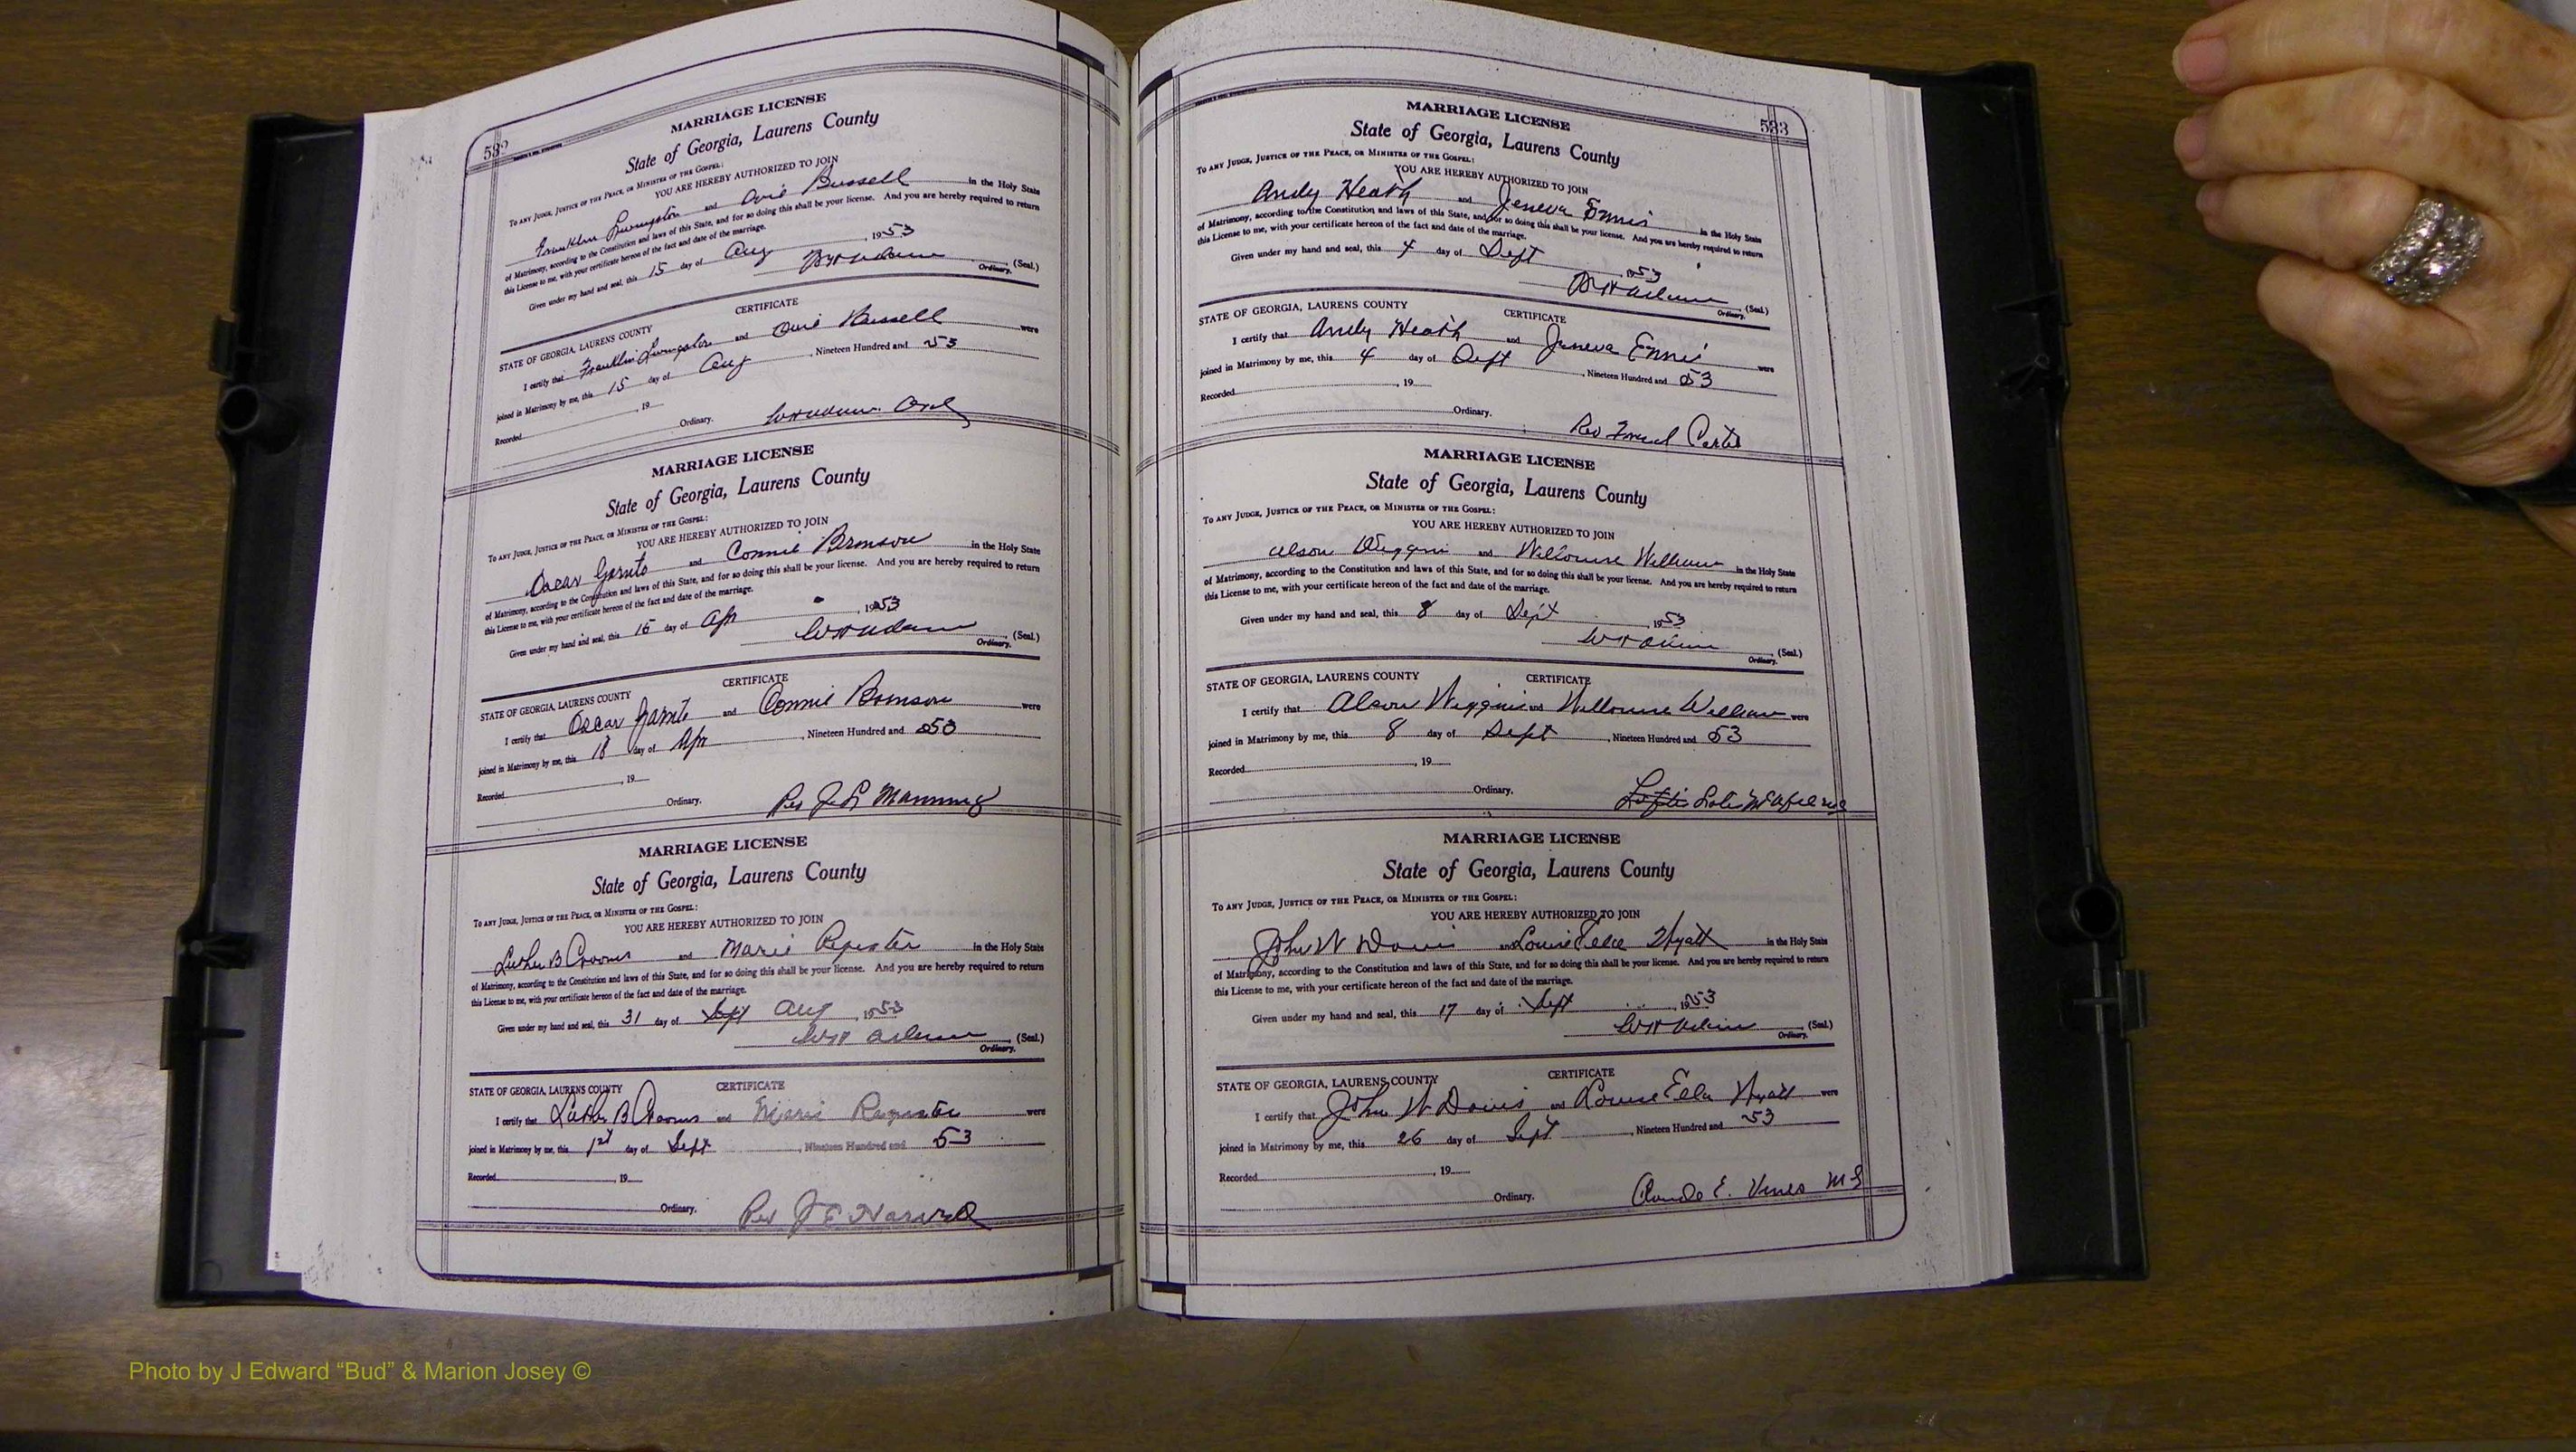 532
MARRIAGE LICENSE
State of Georgia, Laurens County
To ANY JUDGE, JUSTICE OF THE PEACE, OR MINISTER OF THE GOSPEL:
YOU ARE HEREBY AUTHORIZED TO JOIN
Franklin Livingston and Ovie Bussell in the Holy State
of Matrimony, according to the Constitution and laws of this State, and for so doing this shall be your license. And you are hereby required to return
this License to me, with your certificate hereon of the fact and date of the marriage.
Given under my hand and seal, this 15 day of Aug, 1953
(Seal.)
Ordinary.
CERTIFICATE
STATE OF GEORGIA, LAURENS COUNTY
I certify that Franklin Livingston and Ovie Bussell were
joined in Matrimony by me, this 15 day of Aug, Nineteen Hundred and 53
Recorded, 19
Ordinary.
MARRIAGE LICENSE
State of Georgia, Laurens County
To ANY JUDGE, JUSTICE OF THE PEACE, OR MINISTER OF THE GOSPEL:
YOU ARE HEREBY AUTHORIZED TO JOIN
Oscar Garnto and Connie Bronson in the Holy State
of Matrimony, according to the Constitution and laws of this State, and for so doing this shall be your license. And you are hereby required to return
this License to me, with your certificate hereon of the fact and date of the marriage.
Given under my hand and seal, this day of Apr, 1953
(Seal.)
Ordinary.
CERTIFICATE
STATE OF GEORGIA, LAURENS COUNTY
I certify that Oscar Garnto and Connie Bronson were
joined in Matrimony by me, this 18 day of Apr, Nineteen Hundred and 53
Recorded, 19
Ordinary. Rev Manning
MARRIAGE LICENSE
State of Georgia, Laurens County
To ANY JUDGE, JUSTICE OF THE PEACE, OR MINISTER OF THE GOSPEL:
YOU ARE HEREBY AUTHORIZED TO JOIN
Luther B Crooms and Marie Register in the Holy State
of Matrimony, according to the Constitution and laws of this State, and for so doing this shall be your license. And you are hereby required to return
this License to me, with your certificate hereon of the fact and date of the marriage.
Given under my hand and seal, this 31 day of Sept Aug, 1953
(Seal.)
Ordinary.
CERTIFICATE
STATE OF GEORGIA, LAURENS COUNTY
I certify that Luther B Crooms and Marie Register were
joined in Matrimony by me, this 1st day of Sept, Nineteen Hundred and 53
Recorded, 19
Ordinary. Rev J E
533
MARRIAGE LICENSE
State of Georgia, Laurens County
To ANY JUDGE, JUSTICE OF THE PEACE, OR MINISTER OF THE GOSPEL:
YOU ARE HEREBY AUTHORIZED TO JOIN
Andy Heath and Jeneva Ennis in the Holy State
of Matrimony, according to the Constitution and laws of this State, and for so doing this shall be your license. And you are hereby required to return
this License to me, with your certificate hereon of the fact and date of the marriage.
Given under my hand and seal, this 4 day of Sept, 1953
(Seal.)
Ordinary.
CERTIFICATE
STATE OF GEORGIA, LAURENS COUNTY
I certify that Andy Heath and Jeneva Ennis were
joined in Matrimony by me, this 4 day of Sept, Nineteen Hundred and 53
Recorded, 19
Ordinary.
Rev Carter
MARRIAGE LICENSE
State of Georgia, Laurens County
To ANY JUDGE, JUSTICE OF THE PEACE, OR MINISTER OF THE GOSPEL:
YOU ARE HEREBY AUTHORIZED TO JOIN
Alson Wiggins and in the Holy State
of Matrimony, according to the Constitution and laws of this State, and for so doing this shall be your license. And you are hereby required to return
this License to me, with your certificate hereon of the fact and date of the marriage.
Given under my hand and seal, this 8 day of Sept, 1953
(Seal.)
Ordinary.
CERTIFICATE
STATE OF GEORGIA, LAURENS COUNTY
I certify that Alson Wiggins and were
joined in Matrimony by me, this 8 day of Sept, Nineteen Hundred and 53
Recorded, 19
Ordinary.
MARRIAGE LICENSE
State of Georgia, Laurens County
To ANY JUDGE, JUSTICE OF THE PEACE, OR MINISTER OF THE GOSPEL:
YOU ARE HEREBY AUTHORIZED TO JOIN
John W Davis and Louise Ella Hyatt in the Holy State
of Matrimony, according to the Constitution and laws of this State, and for so doing this shall be your license. And you are hereby required to return
this License to me, with your certificate hereon of the fact and date of the marriage.
Given under my hand and seal, this 17 day of Sept, 1953
(Seal.)
Ordinary.
CERTIFICATE
STATE OF GEORGIA, LAURENS COUNTY
I certify that John W Davis and Louise Ella Hyatt were
joined in Matrimony by me, this 26 day of Sept, Nineteen Hundred and 53
Recorded, 19
Ordinary. Claude E. Vines
Photo by J Edward “Bud” & Marion Josey ©